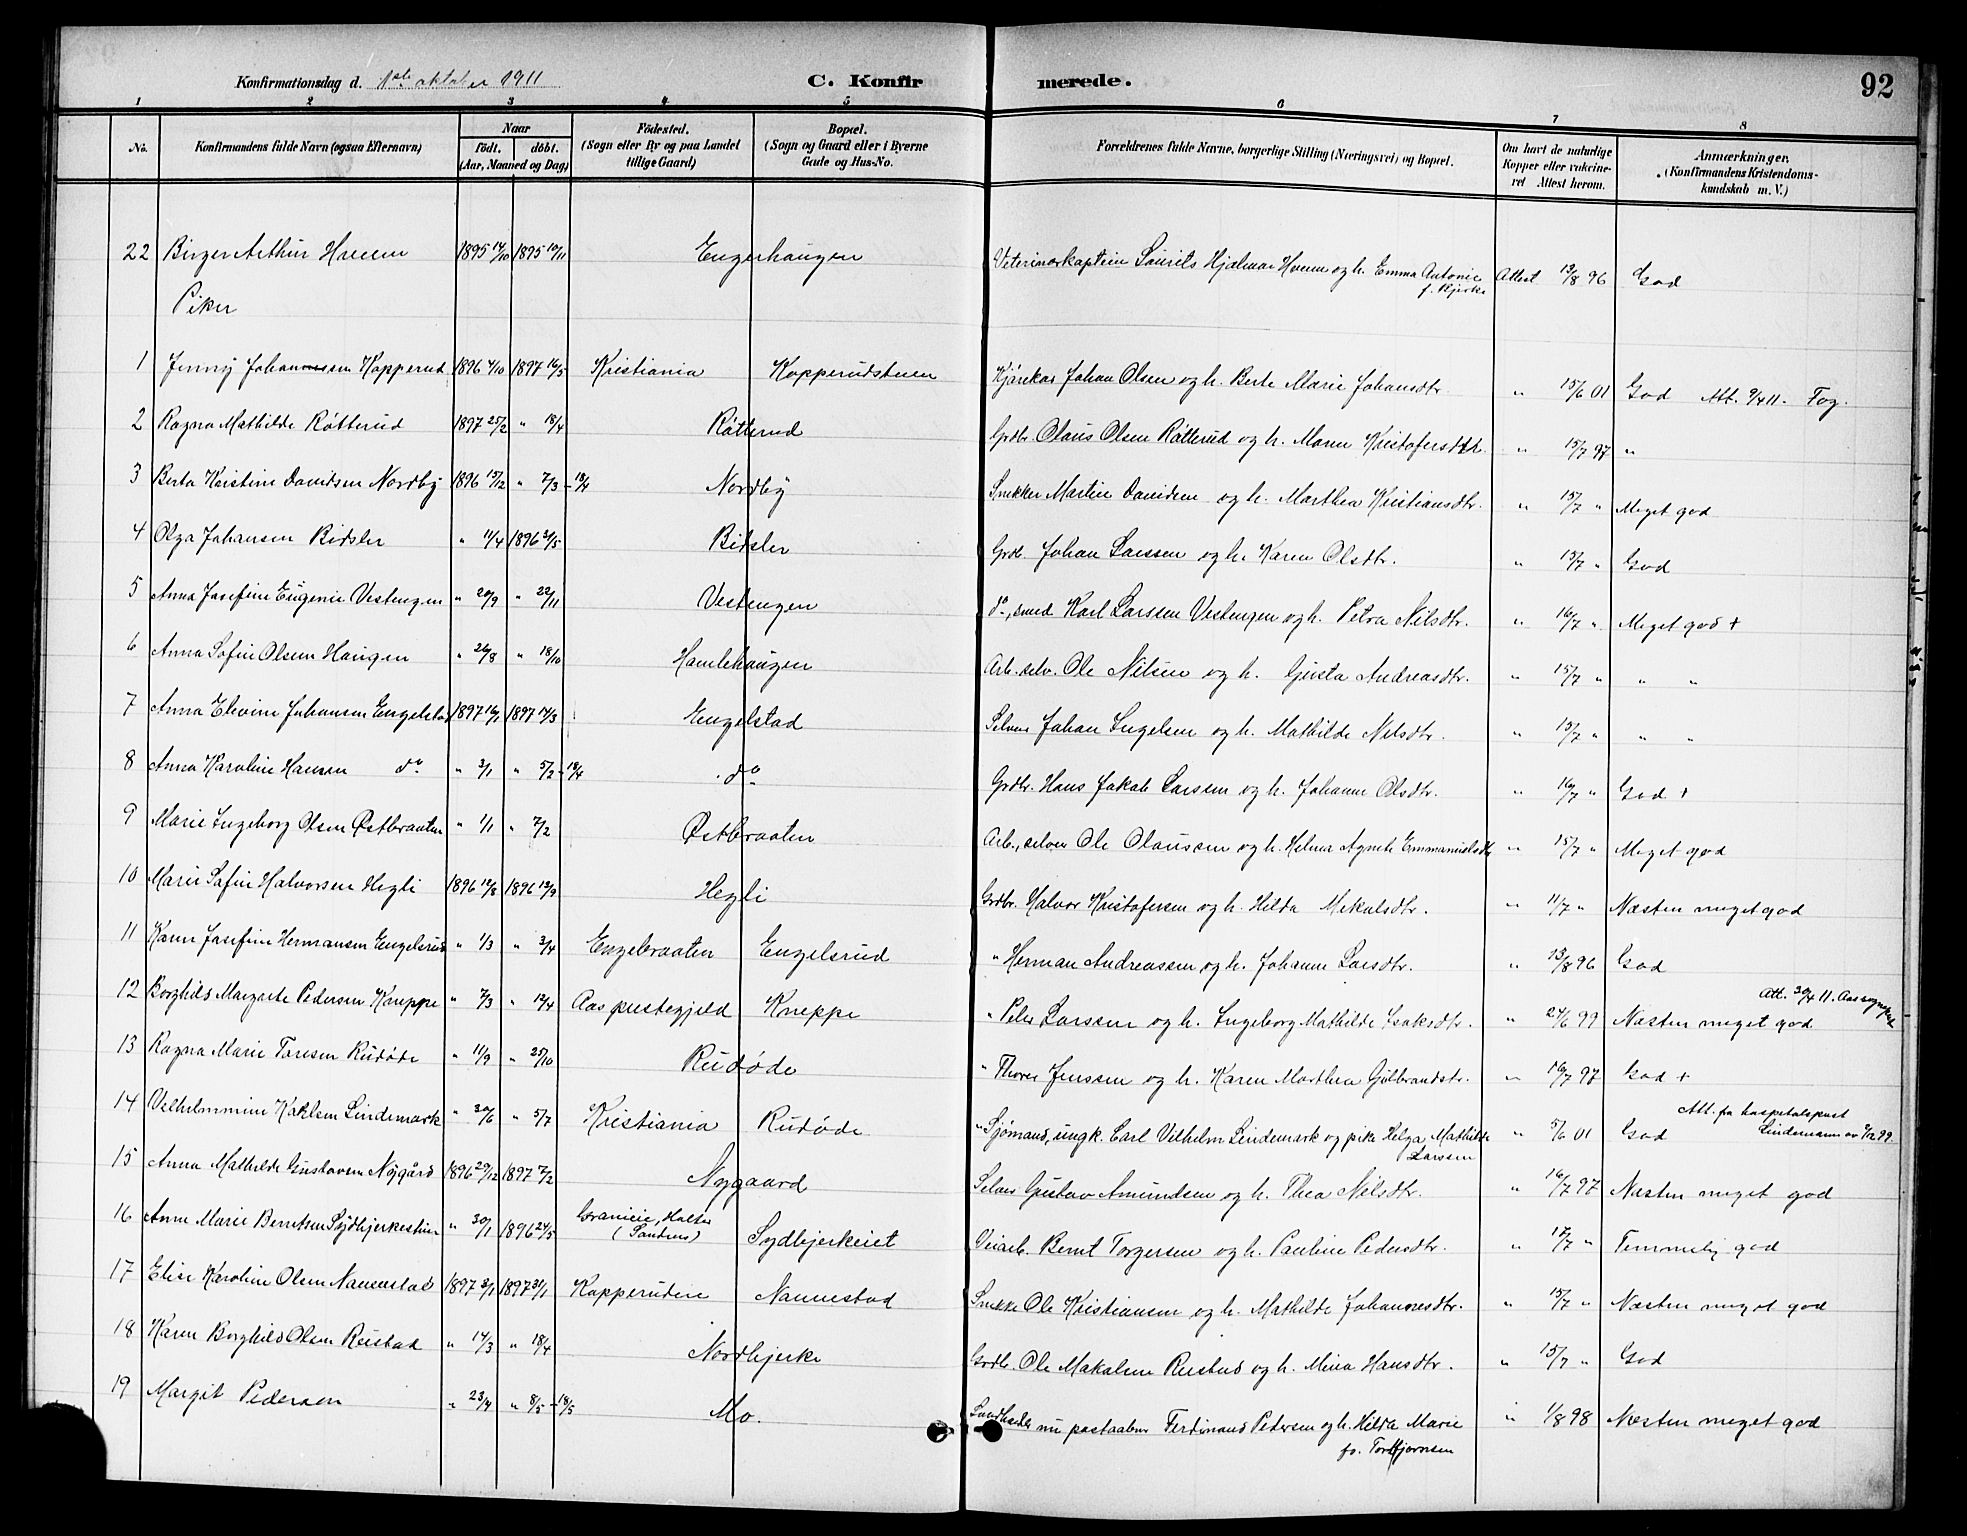 Konfirmationsdag d. 1ste oktober 1911 C. Konfirmerede. 92
1 2 3 4 5 6 7 8
No. Konfirmandens fulde Navn (ogsaa Efternavn) Naar födt. döbt. (Aar, Maaned og Dag) Födested. (Sogn eller By og paa Landet tillige Gaard) Bopæl. (Sogn og Gaard eller i Byerne Gade og Hus-No. Forældrenes fulde Navne, borgerlige Stilling (Næringsvei) og Bopæl. Om havt de naturlige Kopper eller vakcineret Attest herom. Anmærkninger. (Konfirmandens Kristendomskundskab m. V.)
22 Birger Arthur 1895 14/10 1895 10/11 Engerhaugen Veterinærkaptein Laurits Hjalmar og h. Emma Antonie Attest 13/8 96 God
Piker
1 Jenny Johansen Kopperud 1896 4/10 1897 16/5 Kristiania Kopperudstuen Kjørekar Johan Olsen og h. Berte Marie Johansdtr. " 15/6 01 God Att. 9/4 11.
2 Ragna Mathilde Råtterud 1897 25/2 " 18/4 Råtterud Grdbr. Olaus Olsen Råtterud og h. Maren Kristofersdtr. " 15/7 97 "
3 Berta Kristine Davidsen Nordby 1896 15/12 " 7/3 - 18/4 Nordby Snekker Martin Davidsen og h. Marthea Kristiansdtr. " 15/7 " Meget god
4 Olga Johansen Bidsler " 11/4 1896 31/5 Bidsler Grdb. Johan Larssen og h. Karen Olsdtr. " 15/7 " God
5 Anna Josefine Eugenie Vestengen " 20/9 " 22/11 Vestengen do, smed Karl Larssen Vestengen og h. Petra Nilsdtr. " 16/7 " Meget god +
6 Anna Sofie Olsen Haugen " 26/8 " 18/10 Hamlehaugen Arb. selv. Ole Nilsen og h. Gusta Andreasdtr. " 15/7 " " "
7 Anna Elevine Johansen Engelstad 1897 16/1 1897 14/3 Engelstad Selveier Johan Engelsen og h. Mathilde Nilsdtr. " 15/7 " " "
8 Anna Karoline Hansen do " 3/1 " 5/2 - 18/4 do Grdbr. Hans Jakob Larssen og h. Johanne Olsdtr. " 16/7 " God +
9 Marie Ingeborg Olsen Østbraaten " 1/1 " 7/2 Østbraaten Arb., selveier Ole Olaussen og h. Helma Agnete Emmanuelsdtr " 15/7 " Meget god
10 Marie Sofie Halvorsen Hegli 1896 12/8 1896 13/9 Hegli Grdbr. Halvor Kristofersen og h. Hilda Mekalsdtr. " 11/7 " Næsten meget god
11 Karen Josefine Hermansen Engelsrud " 1/3 " 3/4 Engebraaten Engelsrud " Herman Andreassen og h. Johanne Larsdtr. " 13/8 96 God
12 Borghild Margrete Pedersen Kneppe " 7/3 " 12/4 Aas prestegjeld Kneppe " Peder Larssen og h. Ingeborg Mathilde Isaksdtr. " 24/6 99 Næsten meget god Att. 30/4 11. Aas sognepr.
13 Ragna Marie Toresen Rudøde " 11/9 " 25/10 Rudøde " Thorer Jenssen og h. Karen Marthea Gulbrandsdtr. " 16/7 97 God +
14 Vilhelmmine Karlsen Lindemark " 30/6 " 5/7 Kristiania Rudøde " Sjømand, ungk. Carl Vilhelm Lindemark og pike Helga Mathilde Larssen " 5/6 01 God Att. fra hospitalsprest Lindemann
15 Anna Mathilde Gustavsen Nygård 1896 29/12 1897 7/2 Nygaard Selveier Gustav Amundsen og h. Thea Nilsdtr. " 16/7 97 Næsten meget god
16 Anne Marie Berntsen Sydbjerkeeiet " 30/1 1896 24/5 Holter (Sandnes) Sydbjerkeiet Veiarb. Bernt Torgersen og h. Pauline Pedersdtr. " 17/7 " Temmelig god
17 Elise Karoline Olsen Nannestad 1897 3/1 1897 31/1 Kopperudeie Nannestad Snekke Ole Kristiansen og h. Mathilde Johannesdtr. " 15/7 " Næsten meget god
18 Karen Borghild Olsen Reistad " 14/3 " 18/4 Nordbjerke Grdb. Ole Makalsen Rustad og h. Mina Hansdtr. " 15/7 " God
19 Margit Pedersen " 23/4 " 8/5 - 18/5 Mo. Landhandler nu postaabner Ferdinand Pedersen og h. Hilda Marie fø. Torbjørnsen " 1/8 98 Næsten meget god